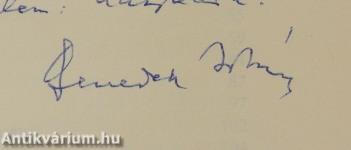 Benedek István
Antikvárium.hu